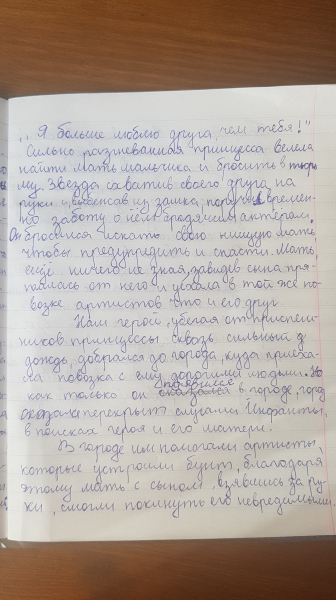 „ Я больше люблю друга, чем тебя!"
Сильно разгневанная принцесса велела
найти мать мальчика и бросить в тюрь
му. Звезда схватив своего друга на
руки и вынеся из замка, поручил времен-
но заботу о нём бродячим актёрам.
Он бросился искать свою нищую мать
чтобы предупредить и спасти. Мать,
ещё ничего не зная, завидев сына пря-
талась от него и уехала в той же по-
возке артистов что и его друг.
Наш герой, убегая от приспеш-
ников принцессы сквозь сильный
дождь, добрался до города, куда приеха-
ла повозка с ему дорогими людьми. Но
как только он появился в городе, город
оказался перекрыт слугами Инфанты,
в поисках героя и его матери.
В городе им помогали артисты,
которые устроили бунт, благодаря
этому мать с сыном, взявшись за ру-
ки, смогли покинуть его невредимыми.